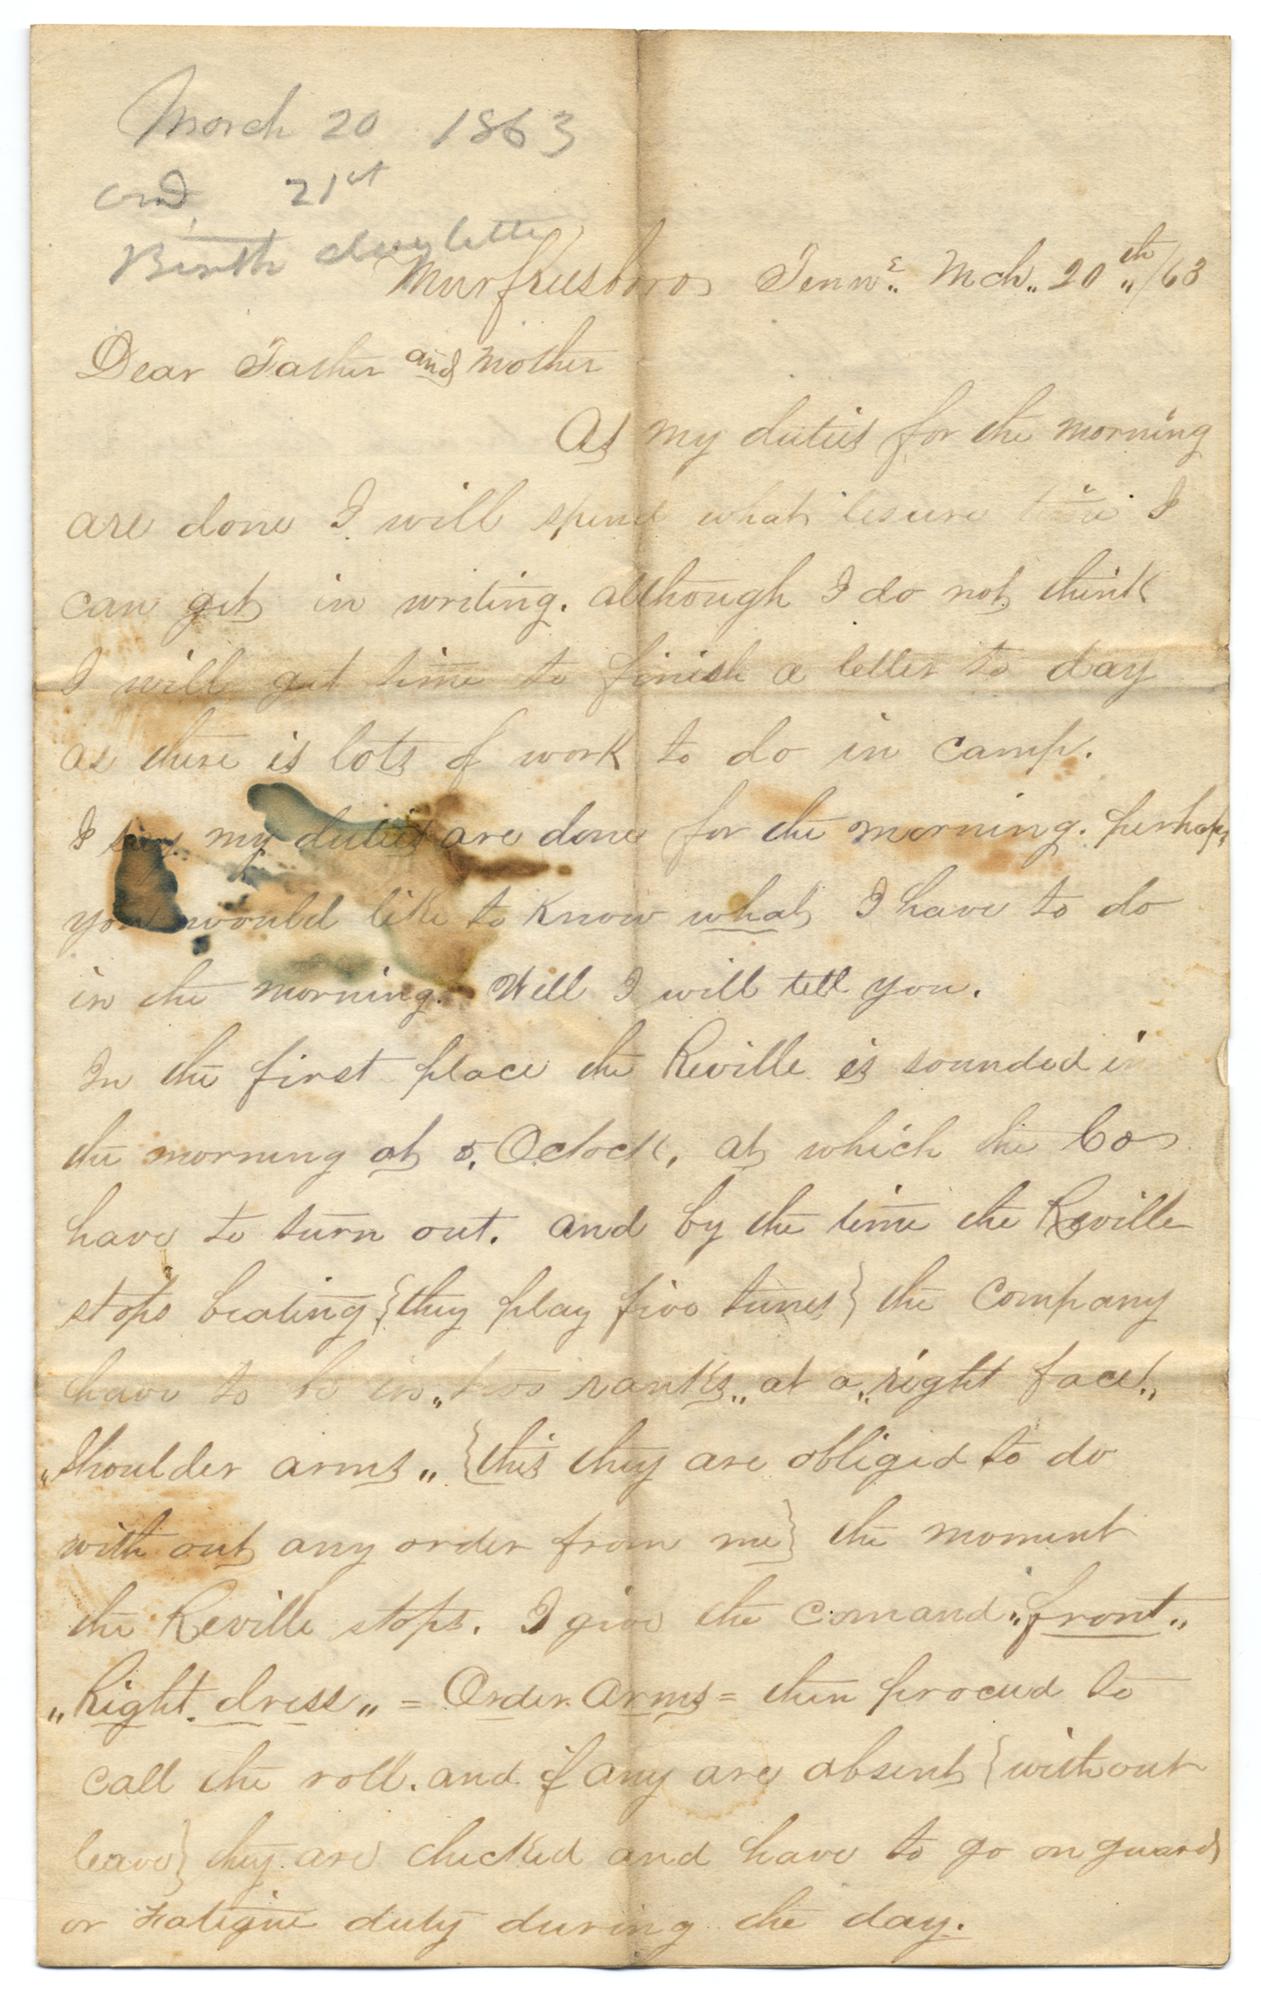 March 20 1863
and 21st
Birth day letter
Murfreesboro Tenn.. Mch.. 20th/63
Dear Father and Mother
As my duties for the morning
are done I will spend what lesure time I
can get in writing. although I do not think
I will get time to finish a letter to day
as there is lots of work to do in camp.
I say my duties are done for the morning. perhaps
you would like to know what I have to do
in the morning. Well I will tell you.
In the first place the Reville is sounded in
the morning at 5, Oclock, at which the Co
have to turn out. and by the time the Reville
stops beating {they play five tunes} the Company
have to be in „two ranks„ at a „right face„
„Shoulder arms„ {this they are obliged to do
with out any order from me} the moment
the Reville stops. I give the comand „front„
„Right dress„ = Order arms = then proceed to
call the roll. and if any are absent {without
leave} they are checked and have to go on guard
or Fatigue duty during the day.